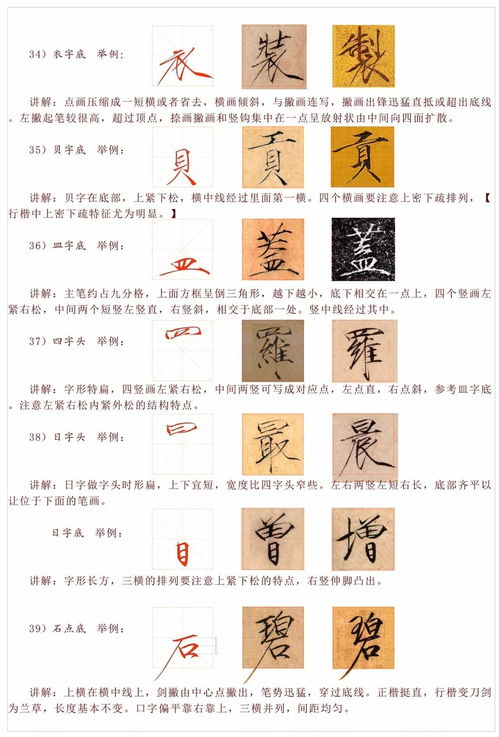 34）衣字底　举例: 衣 装 製
讲解：点画压缩成一短横或者省去，横画倾斜，与撇画连写，撇画出锋迅猛直抵或超出底线
。左撇起笔较很高，超过顶点，捺画撇画和竖钩集中在一点呈放射状由中间向四面扩散。
35）贝字底　举例: 貝 貢 貢
讲解：贝字在底部，上紧下松，横中线经过里面第一横。四个横画要注意上密下疏排列，【
行楷中上密下疏特征尤为明显。】
36）皿字底　举例: 皿 蓋 蓋
讲解：主笔约占九分格，上面方框呈倒三角形，越下越小，底下相交在一点上，四个竖画左
紧右松，中间两个短竖左竖直，右竖斜，相交于底部一处。竖中线经过其中。
37）四字头　举例: 四 羅 羅
讲解：字形特扁，四竖画左紧右松，中间两竖可写成对应点，左点直，右点斜，参考皿字底
。注意左紧右松内紧外松的结构特点。
38）日字头　举例: 日 最 晨
讲解：日字做字头时形扁，上下宜短，宽度比四字头窄些。左右两竖左短右长，底部齐平以
让位于下面的笔画。
日字底　举例: 日 曾 增
讲解：字形长方，三横的排列要注意上紧下松的特点，右竖伸脚凸出。
39）石点底　举例: 石 碧 碧
讲解：上横在横中线上，剑撇由中心点撇出，笔势迅猛，穿过底线。正楷挺直，行楷变刀剑
为兰草，长度基本不变。口字偏平靠右靠上，三横并列，间距均匀。